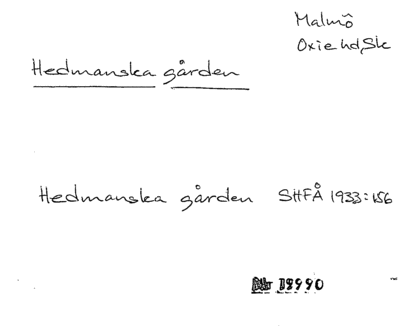 Malmö
Oxie hd, Sk
Hedmanska gården
Hedmanska gården SHFÅ 1933:156